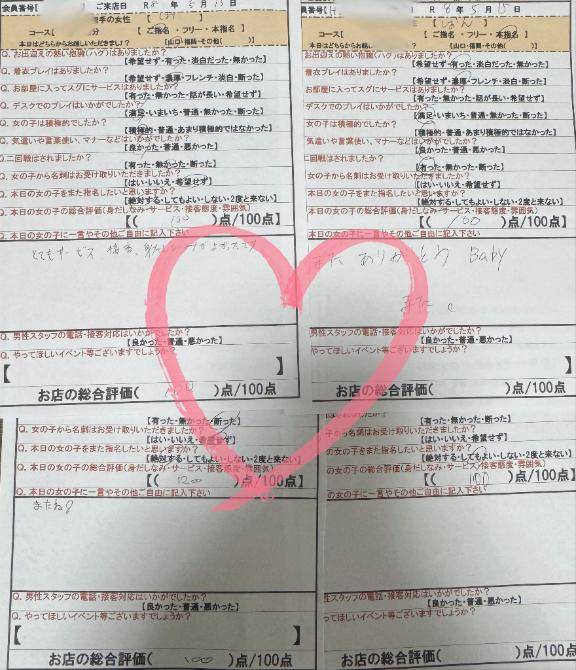 会員番号【 ご来店日 R 年 5月 15日
相手の女性 【
コース【 】 【 ご指名 ・ フリー ・ 本指名 】
本日はどちらからお越しいただきますか？ 【山口・福岡・その他( )】
Q. お出迎えの熱い抱擁(ハグ)はありましたか？
【希望せず・有った・淡白だった・無かった】
Q. 着衣プレイはありましたか？
【希望せず・濃厚・フレンチ・淡白・断った】
Q. お部屋に入ってスグにサービスはありましたか？
【有った・無かった・話が長い・希望せず】
Q. デスクでのプレイはいかがでしたか？
【満足・いまいち・普通・無かった・断った】
Q. 女の子は積極的でしたか？
【積極的・普通・あまり積極的ではなかった】
Q. 気遣いや言葉使い、マナーなどはいかがでしたか？
【良かった・普通・悪かった】
Q. 二回戦はされましたか？
【有った・無かった・断った】
Q. 女の子から名刺はお受け取りいただきましたか？
【はい・いいえ・希望せず】
Q. 本日の女の子をまた指名したいと思いますか？
【絶対する・してもよい・しない・2度と来ない】
Q. 本日の女の子の総合評価(身だしなみ・サービス・接客態度・雰囲気)
【( 100 )点/100点】
Q. 本日の女の子に一言やその他ご自由に記入下さい
とてもサービス 接客
Q. 男性スタッフの電話・接客対応はいかがでしたか？
【良かった・普通・悪かった】
Q. やってほしいイベント等ございますでしょうか？
【 】
お店の総合評価( 100 )点/100点
会員番号【H R 8年 5月 15日
コース【 【 ご指名 ・ フリー ・ 本指名 】
本日はどちらからお越しいただきますか？ 【山口・福岡・その他( )】
お出迎えの熱い抱擁(ハグ)はありましたか？
【希望せず・有った・淡白だった・無かった】
着衣プレイはありましたか？
【希望せず・濃厚・フレンチ・淡白・断った】
お部屋に入ってスグにサービスはありましたか？
【有った・無かった・話が長い・希望せず】
デスクでのプレイはいかがでしたか？
【満足・いまいち・普通・無かった・断った】
女の子は積極的でしたか？
【積極的・普通・あまり積極的ではなかった】
気遣いや言葉使い、マナーなどはいかがでしたか？
【良かった・普通・悪かった】
二回戦はされましたか？
【有った・無かった・断った】
女の子から名刺はお受け取りいただきましたか？
【はい・いいえ・希望せず】
本日の女の子をまた指名したいと思いますか？
【絶対する・してもよい・しない・2度と来ない】
本日の女の子の総合評価(身だしなみ・サービス・接客態度・雰囲気)
【( 100 )点/100点】
本日の女の子に一言やその他ご自由に記入下さい
また ありがとう Baby
また
男性スタッフの電話・接客対応はいかがでしたか？
【良かった・普通・悪かった】
やってほしいイベント等ございますでしょうか？
】
お店の総合評価( )点/100点
【有った・無かった・断った】
Q. 女の子から名刺はお受け取りいただきましたか？
【はい・いいえ・希望せず】
Q. 本日の女の子をまた指名したいと思いますか？
【絶対する・してもよい・しない・2度と来ない】
Q. 本日の女の子の総合評価(身だしなみ・サービス・接客態度・雰囲気)
【( 1200 )点/100点】
Q. 本日の女の子に一言やその他ご自由に記入下さい
またね
Q. 男性スタッフの電話・接客対応はいかがでしたか？
【良かった・普通・悪かった】
Q. やってほしいイベント等ございますでしょうか？
【 】
お店の総合評価( 100 )点/100点
【有った・無かった・断った】
子から名刺はお受け取りいただきましたか？
【はい・いいえ・希望せず】
の女の子をまた指名したいと思いますか？
【絶対する・してもよい・しない・2度と来ない】
の女の子の総合評価(身だしなみ・サービス・接客態度・雰囲気)
【( 100 )点/100点】
の女の子に一言やその他ご自由に記入下さい
性スタッフの電話・接客対応はいかがでしたか？
【良かった・普通・悪かった】
ってほしいイベント等ございますでしょうか？
お店の総合評価( )点/100点